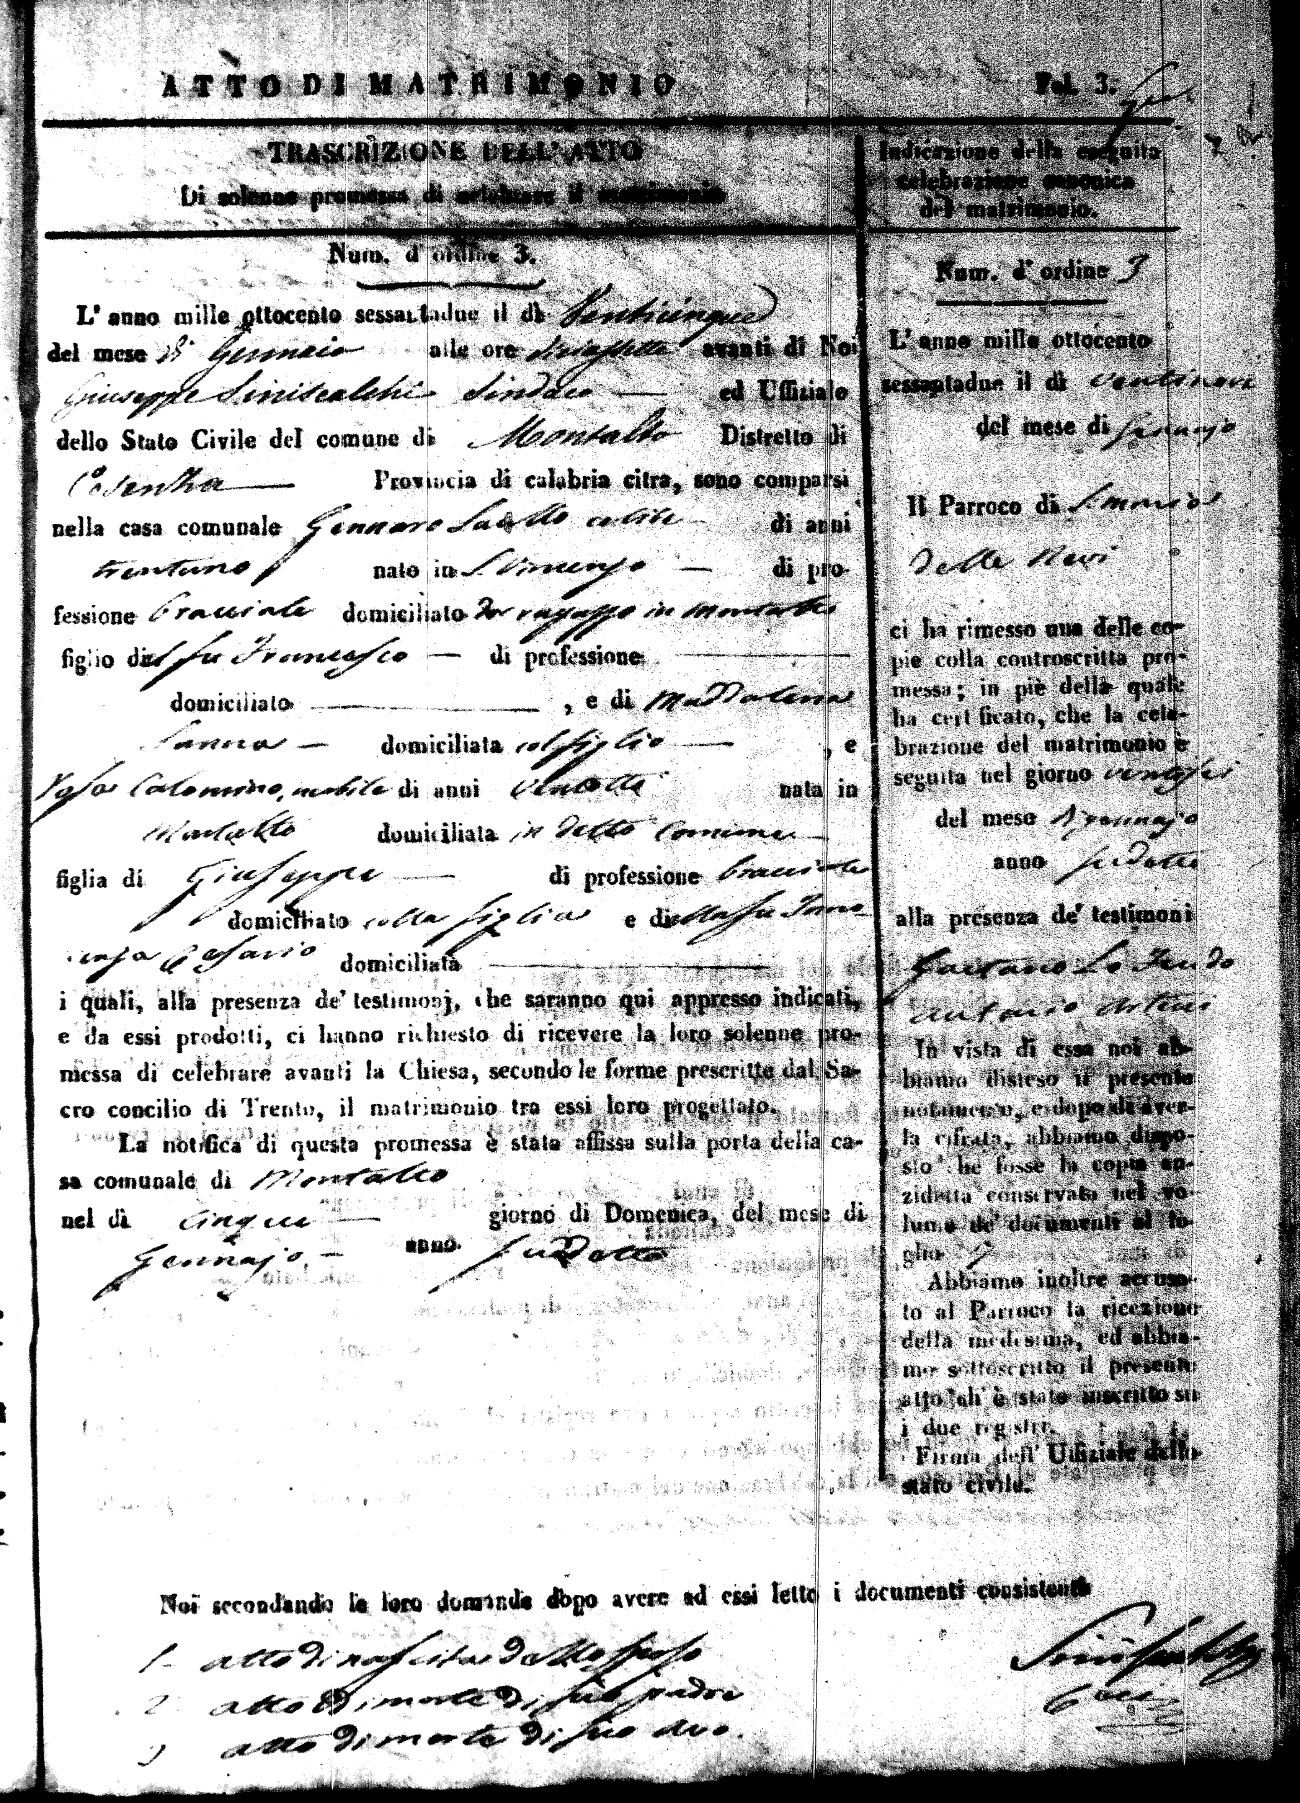 ATTO DI MATRIMONIO
Fol. 3.
TRASCRIZIONE DELL'ATTO
Di solenne promessa di celebrare il matrimonio
Num. d'ordine 3.
L'anno mille ottocento sessantadue il dì Venticinque
del mese di Gennaio alle ore diciassette avanti di Noi
Giuseppe Siniscalchi Sindaco ed Uffiziale
dello Stato Civile del comune di Montalto Distretto di
Cosenza Provincia di calabria citra, sono comparsi
nella casa comunale Gennaro celibe di anni
trentuno nato in S. Vincenzo di pro-
fessione bracciale domiciliato da ragazzo in Montalto
figlio del fu Francesco di professione
domiciliato , e di Maddalena
Sanna domiciliata col figlio , e
Rosa Colomino, nubile di anni ventotto nata in
Montalto domiciliata in detto Comune
figlia di Giuseppe di professione bracciale
domiciliato colla figlia e di della fu Inno-
cenza Cesario domiciliata
i quali, alla presenza de' testimonj, che saranno qui appresso indicati,
e da essi prodotti, ci hanno richiesto di ricevere la loro solenne pro-
messa di celebrare avanti la Chiesa, secondo le forme prescritte dal Sa-
cro concilio di Trento, il matrimonio tra essi loro progettato.
La notifica di questa promessa è stata affissa sulla porta della ca-
sa comunale di Montalto
nel dì cinque giorno di Domenica, del mese di
Gennajo anno suddetto
Noi secondando le loro domande dopo avere ad essi letto i documenti consistenti
1- atto di nascita dello sposo
2 atto di morte di suo padre
3 atto di morte di suo avo.
Indicazione della eseguita
celebrazione canonica
del matrimonio.
Num. d'ordine 3
L'anno mille ottocento
sessantadue il dì ventinove
del mese di Gennajo
Il Parroco di S. Maria
delle Nevi
ci ha rimesso una delle co-
pie colla controscritta pro-
messa; in piè della quale
ha certificato, che la cele-
brazione del matrimonio è
seguita nel giorno ventisei
del mese di gennajo
anno sudetto
alla presenza de' testimoni
Gaetano Lo Feudo
Antonio
In vista di essa noi ab-
biamo disteso il presente
notamento, e dopo di aver-
la cifrata, abbiamo dispo-
sto che fosse la copia an-
zidetta conservata nel vo-
lume de' documenti al fo-
glio 7
Abbiamo inoltre accusa-
to al Parroco la ricezione
della medesima, ed abbia-
mo sottoscritto il presente
atto ch' è stato inscritto su
i due registri.
Firma dell' Uffiziale dello
stato civile.
Siniscalchi